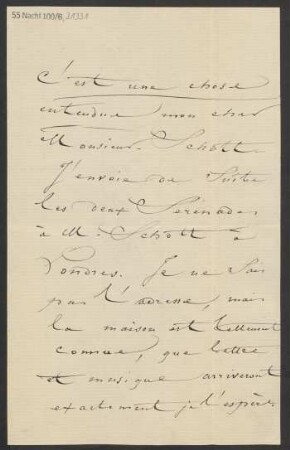 55 Nachl 100/B,
C'est une chose
entendue mon cher
Monsieur Schott.
J'envoie de suite
les deux Sérénades
à M. Schott à
Londres. Je ne sais
pas l'adresse, mais
la maison est tellement
connue, que lettre
et musique arriveront
exactement je l'espère.